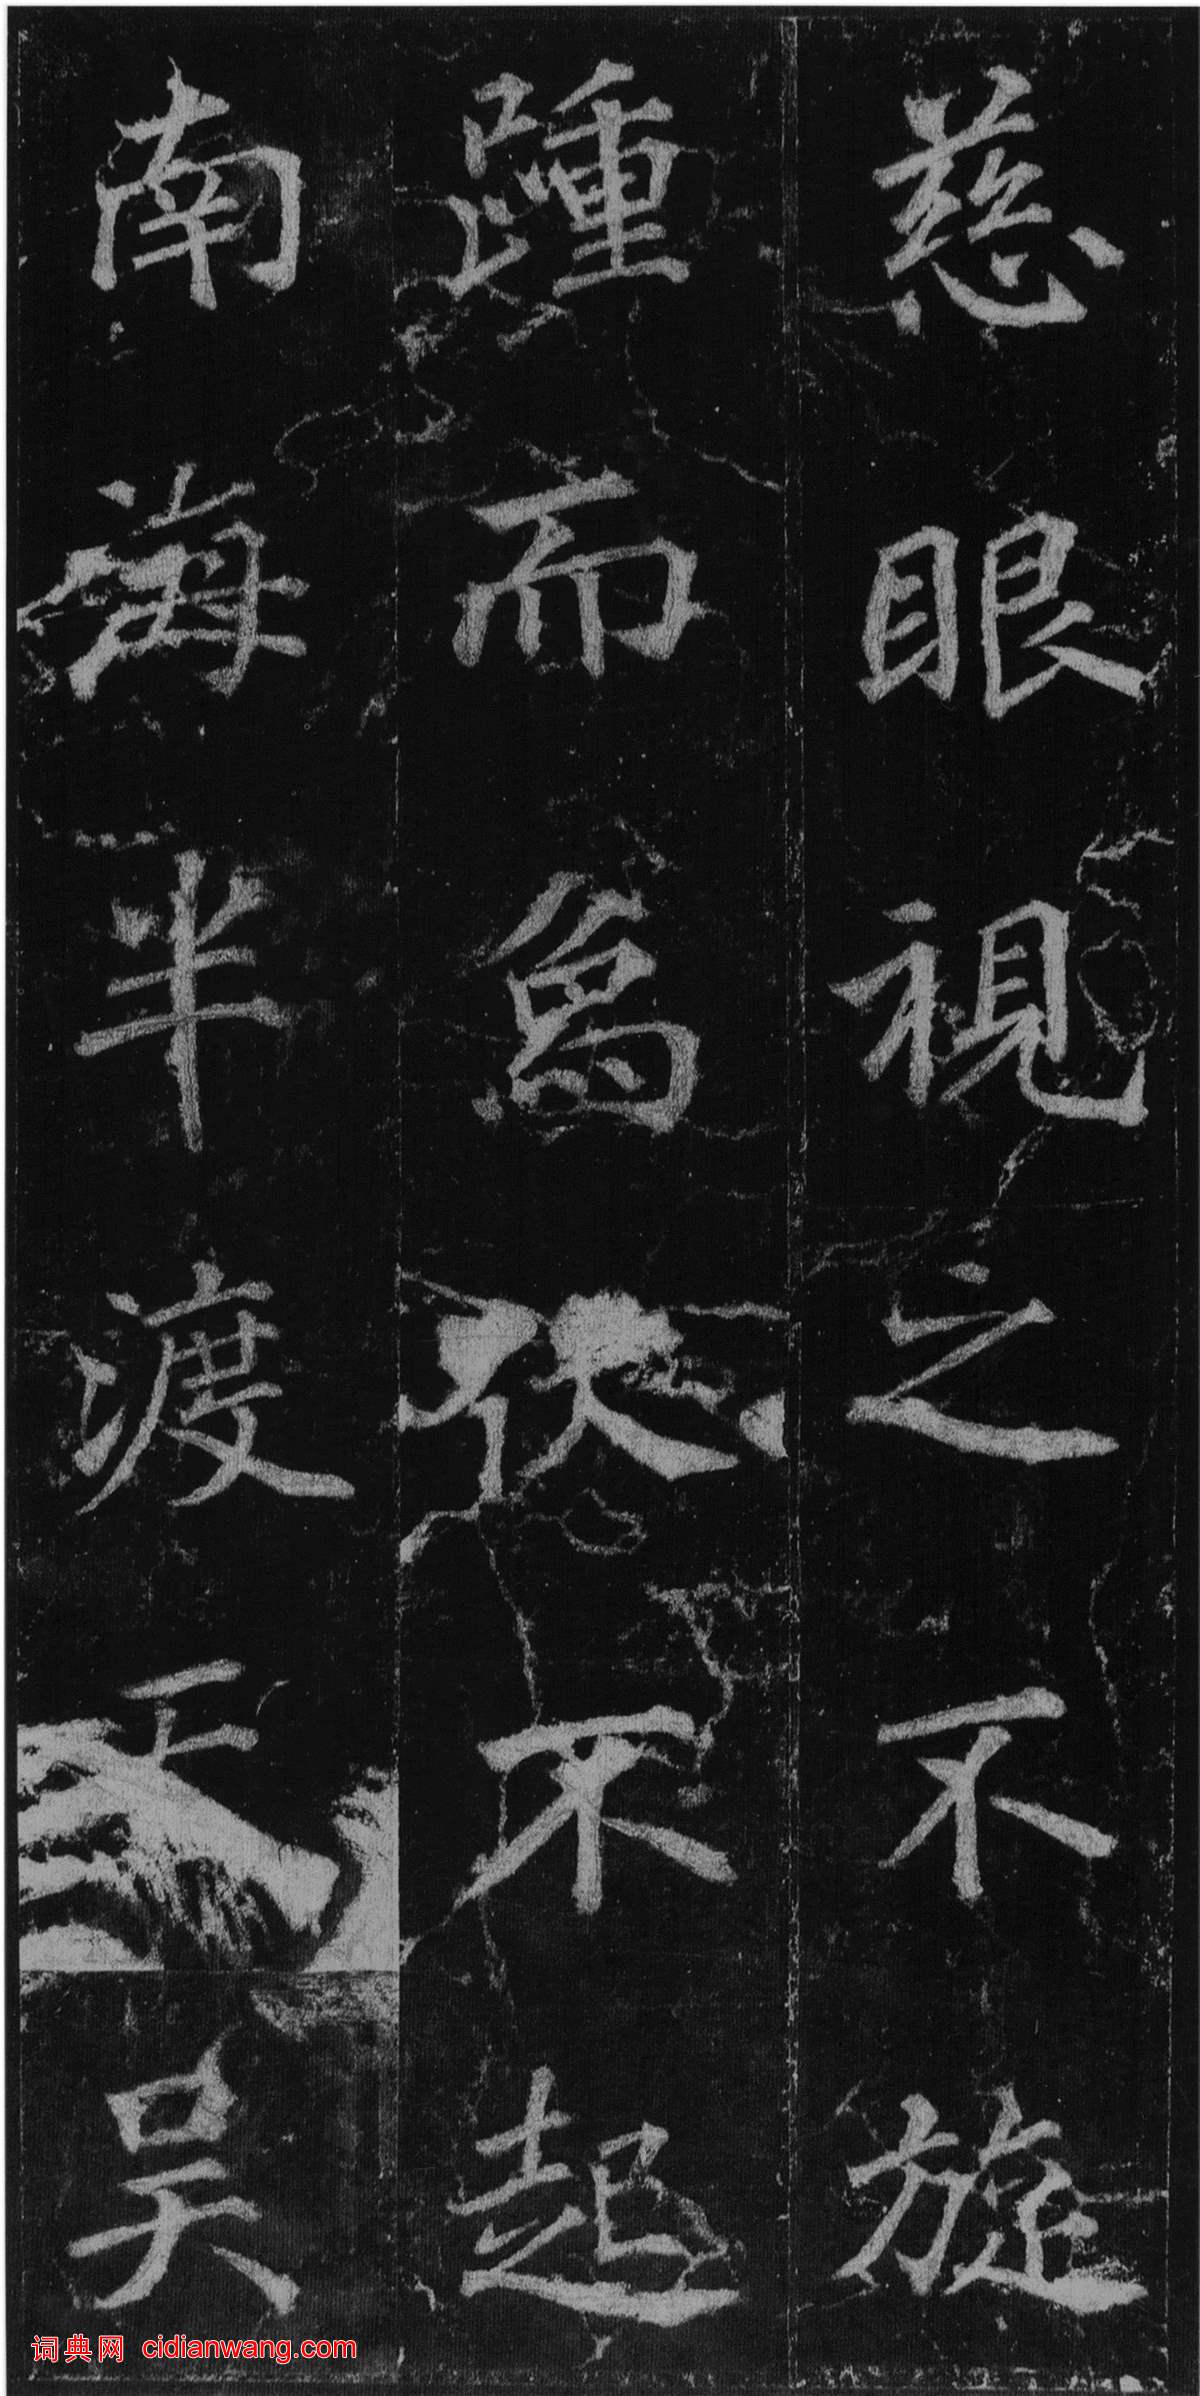 慈眼視之不旋
踵而爲伏不起
南海半渡天吳
词典网 cidianwang.com